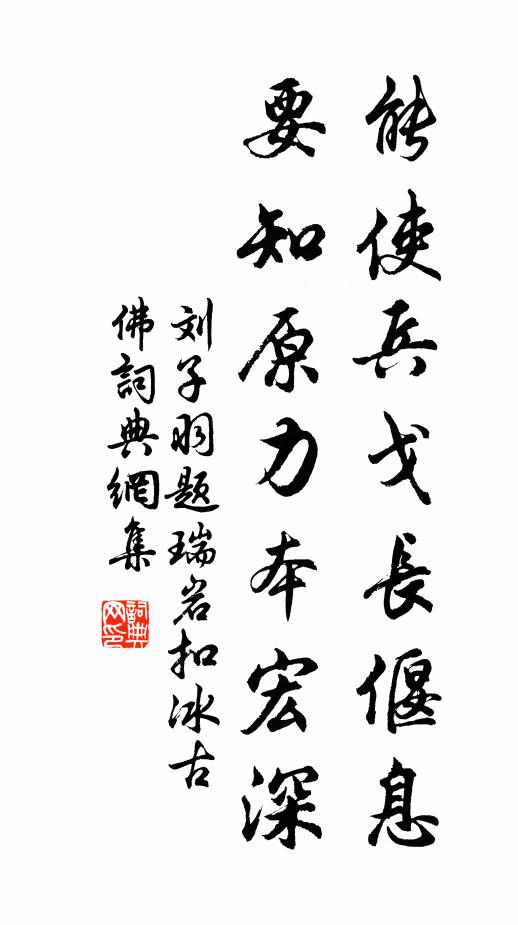 能使兵戈長偃息
要知原力本宏深
刘子羽题瑞岩扣冰古
佛詞典網集
詞典网印